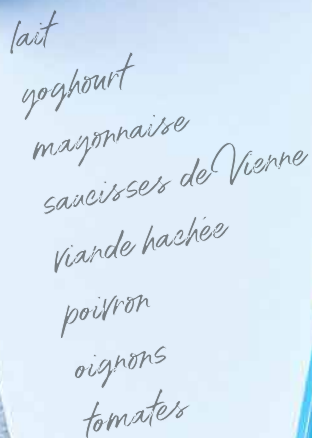 lait
yoghourt
mayonnaise
saucisses de Vienne
viande hachée
poivron
oignons
tomates